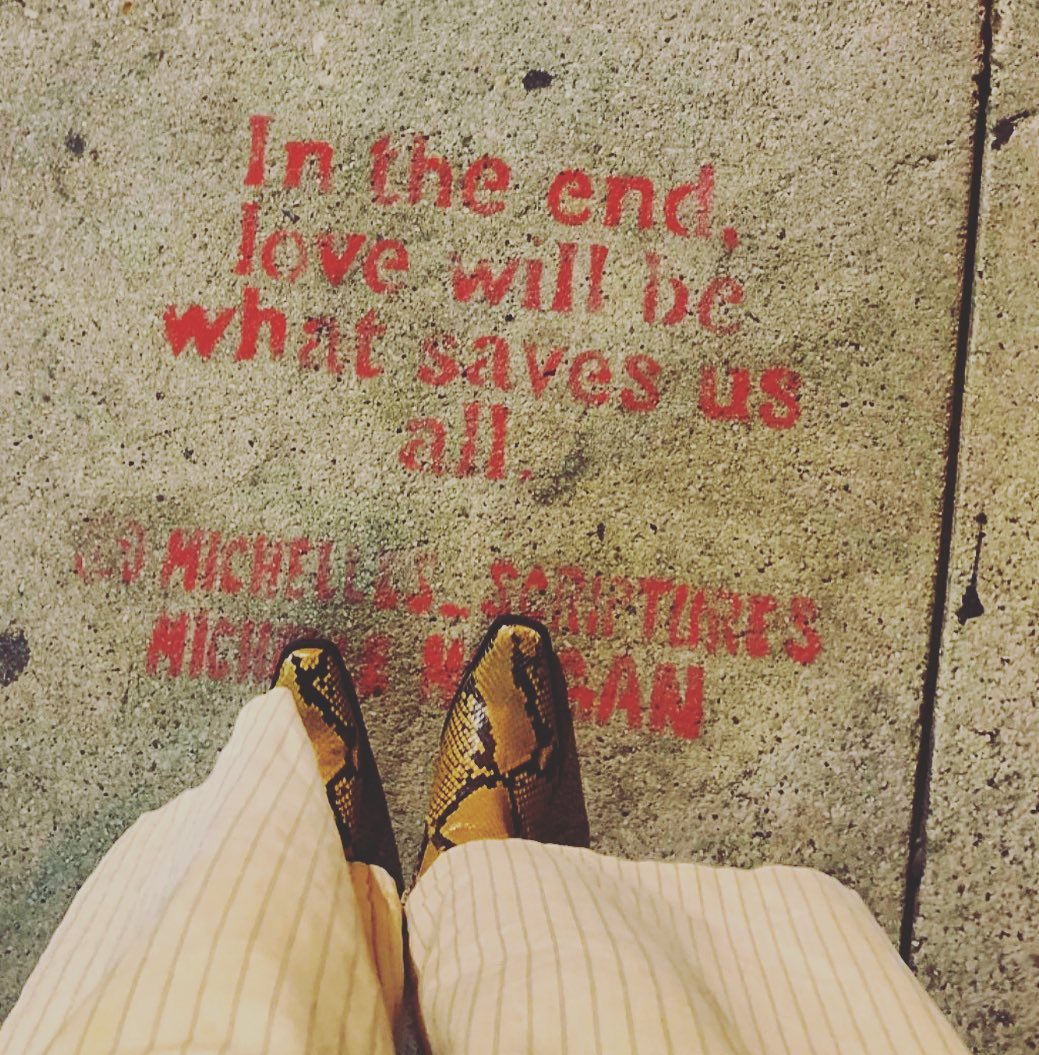 In the end,
love will be
what saves us
all.
MICHELLES_SCRIPTURES